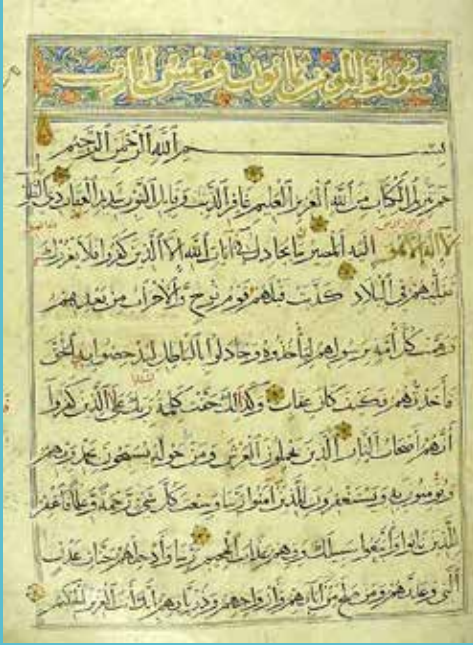 سورة المؤمن ثمانون وخمس آيات
بسم الله الرحمن الرحيم
حم تنزيل الكتاب من الله العزيز العليم غافر الذنب وقابل التوب شديد العقاب ذي الطول
لا إله إلا هو إليه المصير ما يجادل في آيات الله إلا الذين كفروا فلا يغررك
تقلبهم في البلاد كذبت قبلهم قوم نوح والأحزاب من بعدهم
وهمت كل أمة برسولهم ليأخذوه وجادلوا بالباطل ليدحضوا به الحق
فأخذتهم فكيف كان عقاب وكذلك حقت كلمة ربك على الذين كفروا
أنهم أصحاب النار الذين يحملون العرش ومن حوله يسبحون بحمد ربهم
ويؤمنون به ويستغفرون للذين آمنوا ربنا وسعت كل شيء رحمة وعلما فاغفر
للذين تابوا واتبعوا سبيلك وقهم عذاب الجحيم ربنا وأدخلهم جنات عدن
التي وعدتهم ومن صلح من آبائهم وأزواجهم وذرياتهم إنك أنت العزيز الحكيم